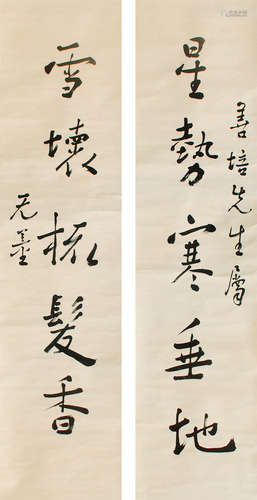 善培先生屬
星勢寒垂地
雪壞梳髮香
无量